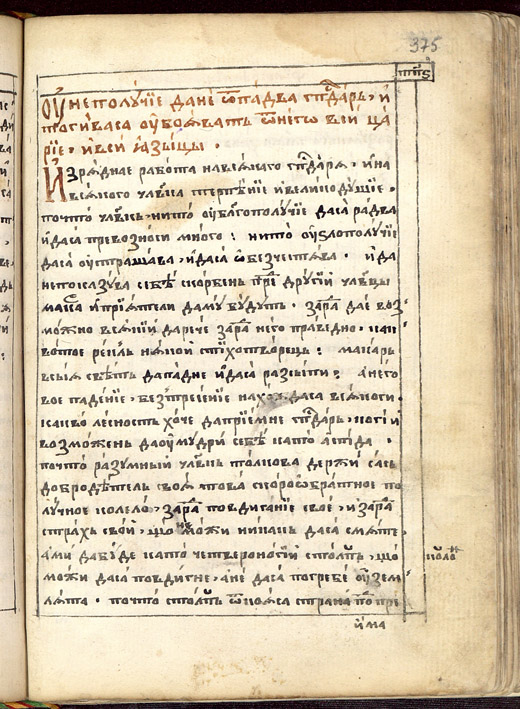 375
тп҃ѕ
Оу҆ неполꙋчїе дане ѿпадва гп҃дарь, и
тогива са оу҆боѧватъ ѿ него вси ца
рїе, и вси ꙗ҆зыцы.
И҆зрѧднае работа на всѧкаго гп҃дарѧ, и на
всѧкого чл҃вка терпѣнїе и великодꙋшїе.
почто чл҃вкъ нито оу҆ бл҃гополꙋчїе да са радва
и да са превозноси много: нито оу҆ ѕлополꙋчїе
да са оу҆страшава, и да са ѡ҆безчества. и да
непоказꙋва себѣ скорбенъ пре́ другїй чл҃вцы
макса и прїѧтели да мꙋ бꙋдутъ. зара́ дае воз
можно всѧкїй да рече зара́ него праведно. как
вотое реклъ нѧкой стїхотворецъ: макаръ
всыѧ свѣтъ да падне и да са разсыпи: а него
вое паденїе, безтрепенїе нахожда са всѧкоги
какво лесность хоче да прїемне гп҃дарь, коги и
возможенъ да оу҆мꙋдри себѣ като аспида.
почто разумный чл҃вкъ толкова держи сась
добродѣтель своѧ това скороѡ҆братное по
лꙋчное колело, зара́ повдиганїе свое, и зара́
страхъ свой, що не може никакъ да са смѧте.
ами да бꙋде като четвероногїй столпъ, що
може да са повдигне, а не да са погребе оу҆ зем
лѧта. почто столпъ ѿ коѧса страна по пре
коло
има